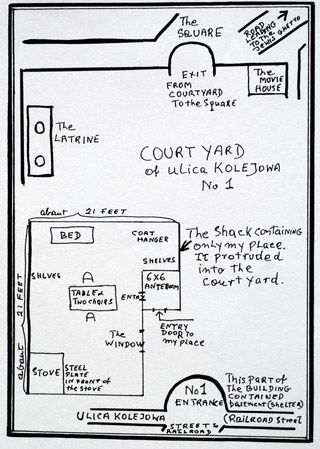 The
SQUARE
ROAD
LEADING
TO THE
JEWISH GHETTO
EXIT
FROM
COURTYARD
To the SQUARE
The
MOVIE
HOUSE
The
LATRINE
COURT YARD
of ULICA KOLEJOWA
No 1
about 21 FEET
BED
COAT
HANGER
SHELVES
The Shack containing
only my place.
It protruded
into the
Court Yard.
SHLVES
6X6
ENTR
TABLE N
TWO CHAIRS
about 21 FEET
The
WINDOW
ENTRY
DOOR TO
my PLACE
STOVE
STEEL
PLATE
IN FRONT OF
the STOVE
No1
ENTRANCE
This part of
The BUILDING
CONTAINED
basement (shelter)
ULICA KOLEJOWA
(RAILROAD Street
STREET &
RAILROAD